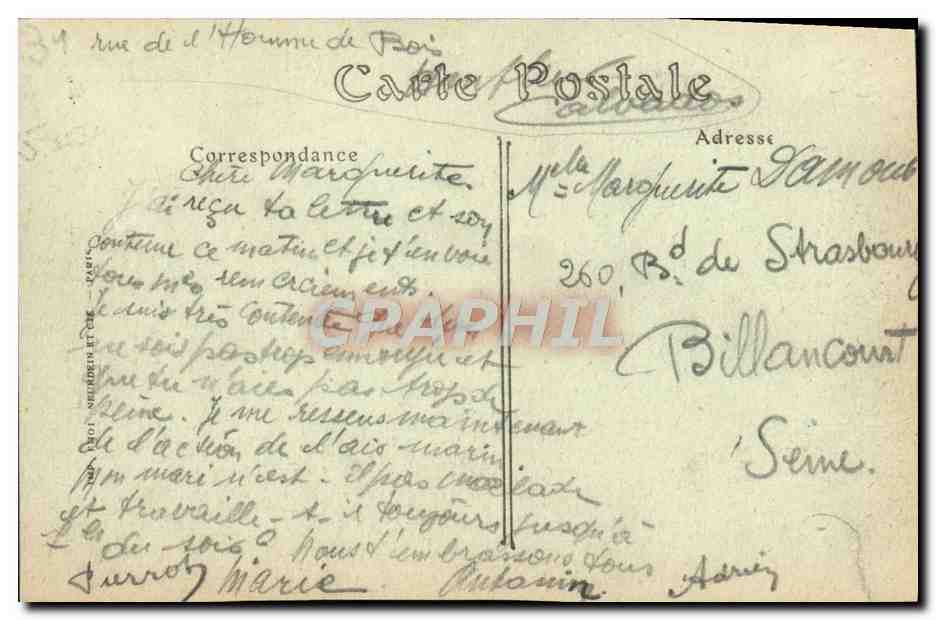 31 rue de l'Homme de Bois
Carte Postale
Calvados
Correspondance
Adresse
Chère Marguerite
J'ai reçu ta lettre et son
contenu ce matin et je t'envoie
tous mes remerciements
Je suis très contente que
ne sois pas trop et
que tu n'aies pas trop de
peine. Je me ressens maintenant
de l'action de l'air marin
Mon mari n'est-il pas malade
et travaille-t-il toujours jusqu'à
du soir? Nous t'embrassons tous
Pierrot Marie Antonin Adrien
Melle Marguerite Damour
260, Bd de Strasbourg
Billancourt
Seine.
IMP. PHOT. NEURDEIN ET CIE. — PARIS
CPAPHIL